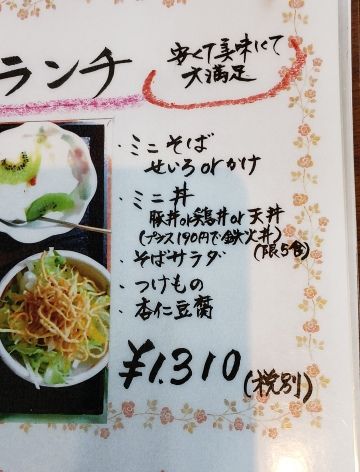 ランチ
安くて美味にて
大満足
・ミニそば
せいろorかけ
・ミニ丼
豚丼or鶏丼or天丼
(プラス190円で鉄火丼)
(限5食)
・そばサラダ
・つけもの
・杏仁豆腐
¥1.310(税別)